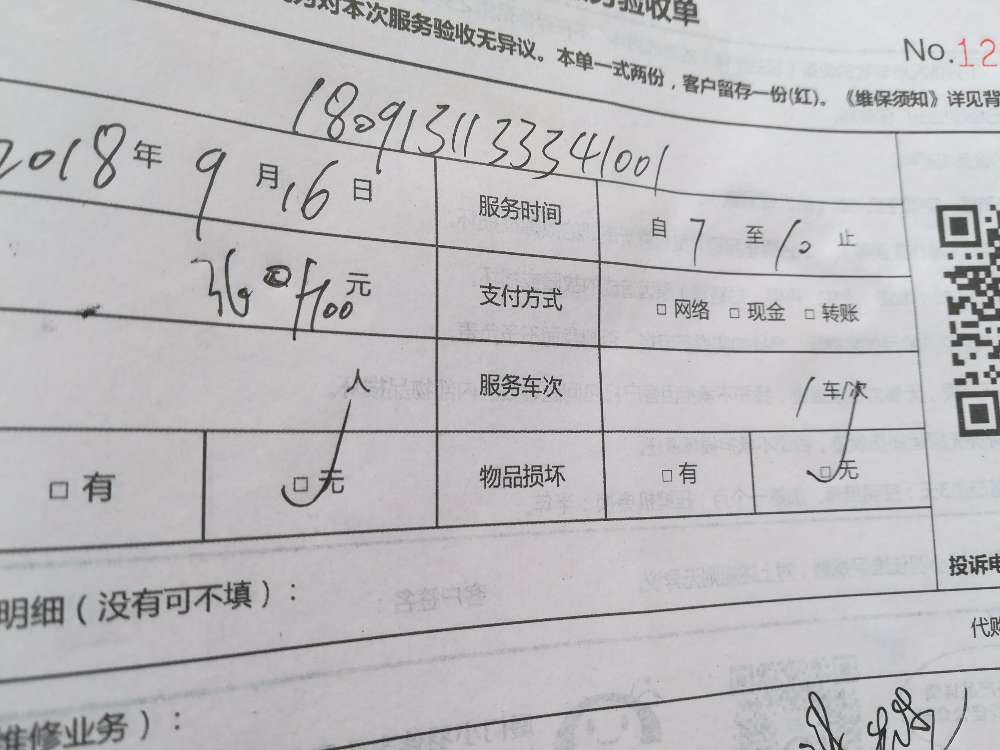 验收单
对本次服务验收无异议。本单一式两份，客户留存一份(红)。《维保须知》详见背
No.12
1809131133341001
2018年9月16日 服务时间 自7至10止
元 支付方式 □网络 □现金 □转账
人 服务车次 1车/次
□有 □无 物品损坏 □有 □无
投诉电
明细（没有可不填）：
代购
维修业务）：